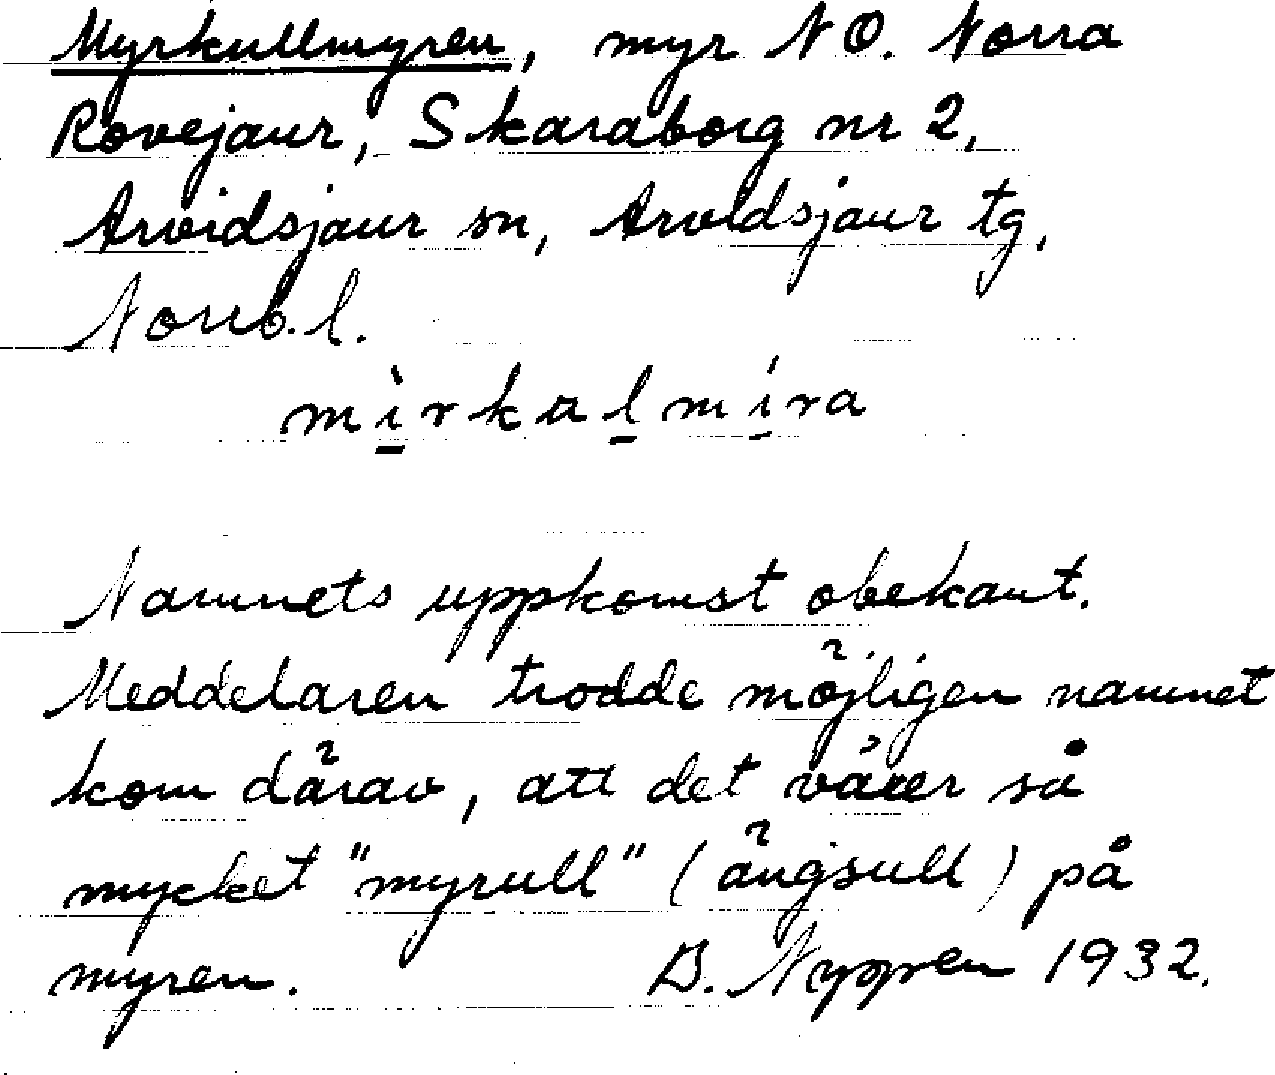 Myrkullmyren, myr N O. Norra
Rovejaur, Skaraborg nr 2,
Arvidsjaur sn, Arvidsjaur tg,
Norrb. l.
mìrkalmíra
Namnets uppkomst obekant.
Meddelaren trodde möjligen namnet
kom därav, att det växer så
mycket "myrull" (ängsull) på
myren. B. Nyppen 1932.